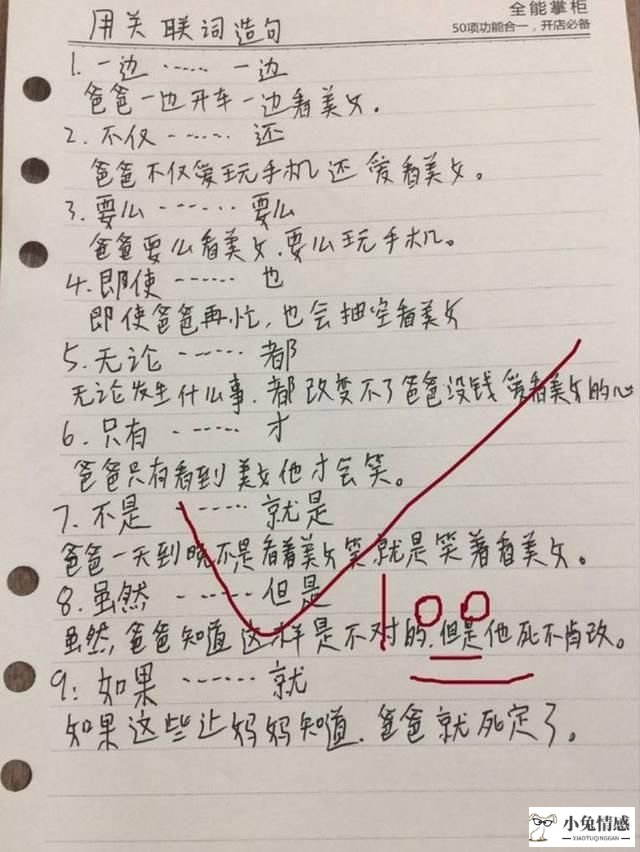 全能掌柜
50项功能合一，开店必备
用关联词造句
1.一边……一边
爸爸一边开车一边看美女.
2.不仅……还
爸爸不仅爱玩手机还爱看美女。
3.要么……要么
爸爸要么看美女.要么玩手机。
4.即使……也
即使爸爸再忙,也会抽空看美女
5.无论……都
无论发生什么事.都改变不了爸爸没钱爱看美女的心
6.只有……才
爸爸只有看到美女他才会笑。
7.不是……就是
爸爸一天到晚不是看着美女笑就是笑着看美女。
8.虽然……但是
虽然,爸爸知道这样是不对的.但是他死不肯改。
100
9:如果……就
如果这些让妈妈知道.爸爸就死定了。
小兔情感
XIAOTUQINGGAN